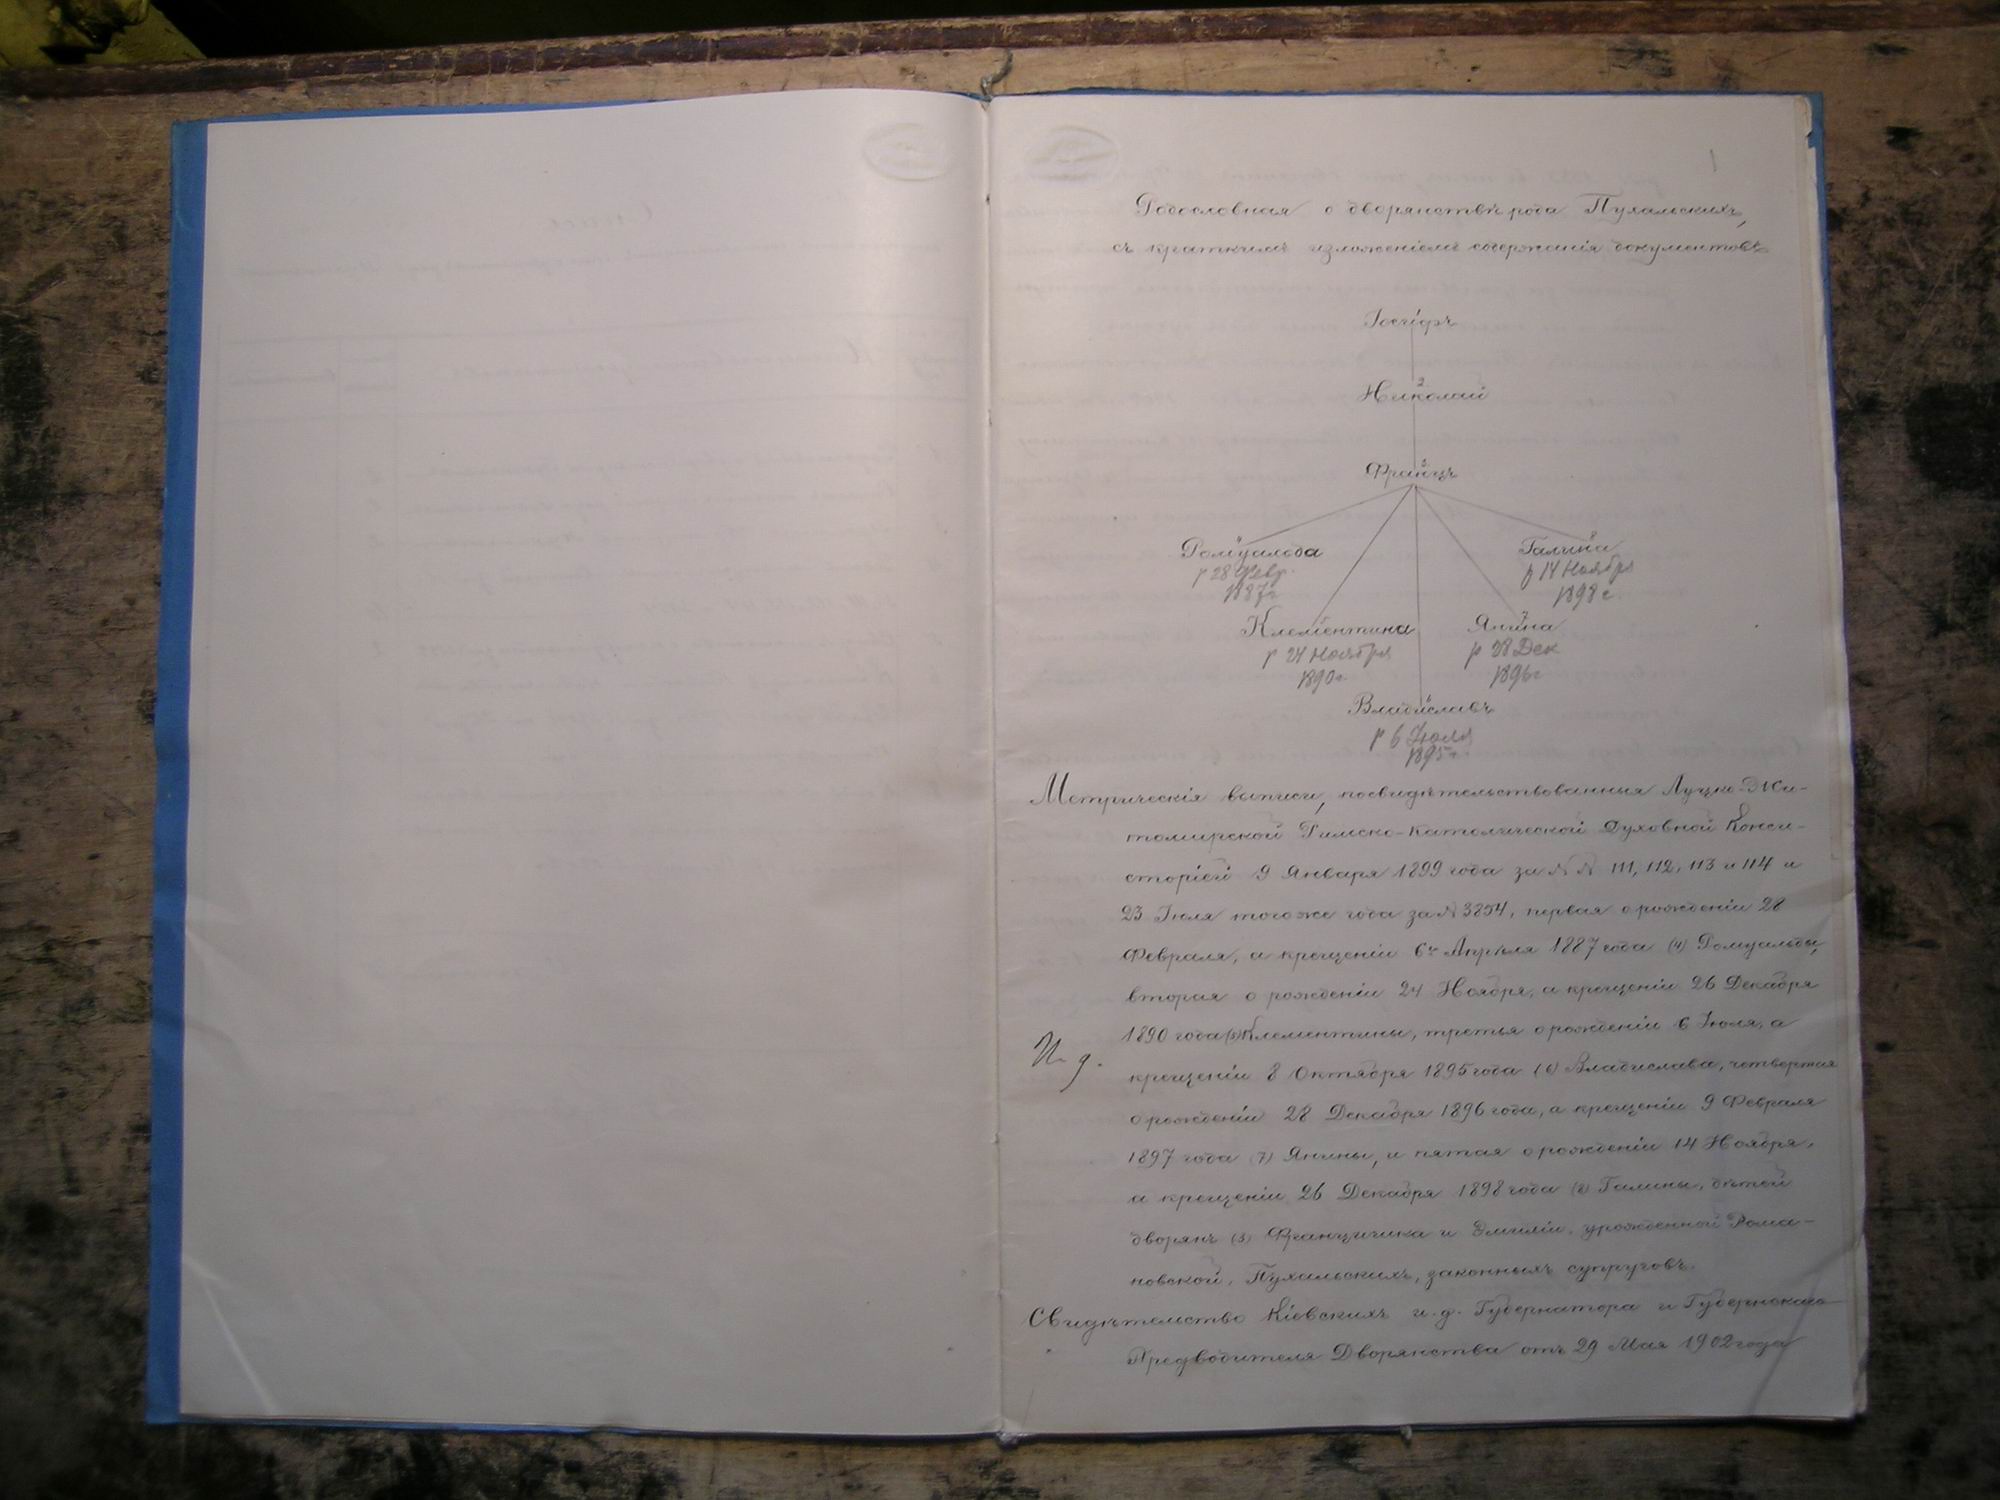 1
Родословная о дворянствѣ рода Пухальскихъ,
съ краткимъ изложеніемъ содержанія документовъ
Іосифъ
2.
Николай
3.
Францъ
4 8
Ромуальда Галина
р 28 Февр. р 14 Ноября
1887г 1898 г.
5 7
Клементина Янина
р 24 Ноября р 28 Дек
1890г. 1896г
6
Владиславъ
р 6 Іюля
1895г.
Метрическія выписи, посвидѣтельствованныя Луцко-Жи-
томирской Римско-Католической Духовной Конси-
сторіей 9 Января 1899 года за №№ 111, 112, 113 и 114 и
23 Іюля того же года за № 3854, первая о рожденіи 28
Февраля, а крещеніи 6го Апрѣля 1887 года (4) Ромуальды,
вторая о рожденіи 24 Ноября, а крещеніи 26 Декабря
1890 года (5) Клементины, третья о рожденіи 6 Іюля, а
И. д.
крещеніи 8 Октября 1895 года (6) Владислава, четвертая
о рожденіи 28 Декабря 1896 года, а крещеніи 9 Февраля
1897 года (7) Янины, и пятая о рожденіи 14 Ноября,
а крещеніи 26 Декабря 1898 года (8) Галины, дѣтей
дворянъ (3) Францишка и Эмиліи, урожденной Рома-
новской, Пухальскихъ, законныхъ супруговъ.
Свидѣтельство Кіевскихъ и. д. Губернатора и Губернскаго
Предводителя Дворянства отъ 29 Мая 1902 года